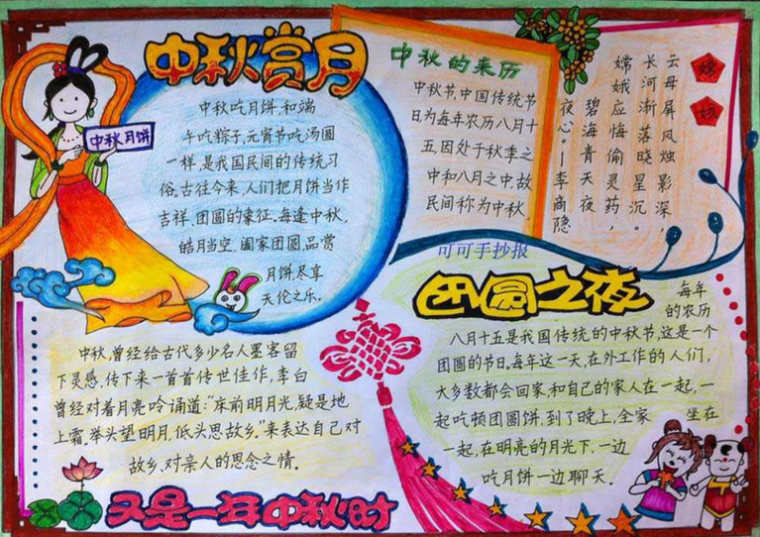 中秋赏月
中秋月饼
中秋吃月饼,和端
午吃粽子,元宵节吃汤圆
一样,是我国民间的传统习
俗。古往今来,人们把月饼当作
吉祥、团圆的象征。每逢中秋,
皓月当空,阖家团圆,品尝
月饼尽享
天伦之乐。
中秋的来历
中秋节,中国传统节
日为每年农历八月十
五,因处于秋季之
中和八月之中,故
民间称为中秋。
嫦
娥
云母屏风烛影深,
长河渐落晓星沉。
嫦娥应悔偷灵药,
碧海青天夜
夜心。—李商隐
可可手抄报
团圆之夜
每年
的农历
八月十五是我国传统的中秋节,这是一个
团圆的节日。每年这一天,在外工作的人们,
大多数都会回家,和自己的家人在一起,一
起吃顿团圆饼,到了晚上,全家 坐在
一起,在明亮的月光下,一边
吃月饼一边聊天。
中秋,曾经给古代多少名人墨客留
下灵感,传下来一首首传世佳作,李白
曾经对着月亮吟诵道:"床前明月光,疑是地
上霜,举头望明月,低头思故乡。"来表达自己对
故乡,对亲人的思念之情。
又是一年中秋时